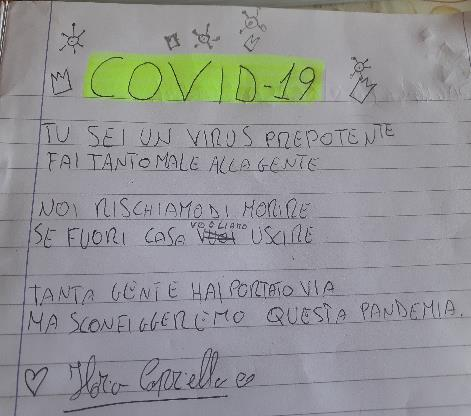 COVID-19
TU SEI UN VIRUS PREPOTENTE
FAI TANTO MALE ALLA GENTE
NOI RISCHIAMO DI MORIRE
SE FUORI CASA VOGLIAMO USCIRE
TANTA GENTE HAI PORTATO VIA
MA SCONFIGGEREMO QUESTA PANDEMIA.